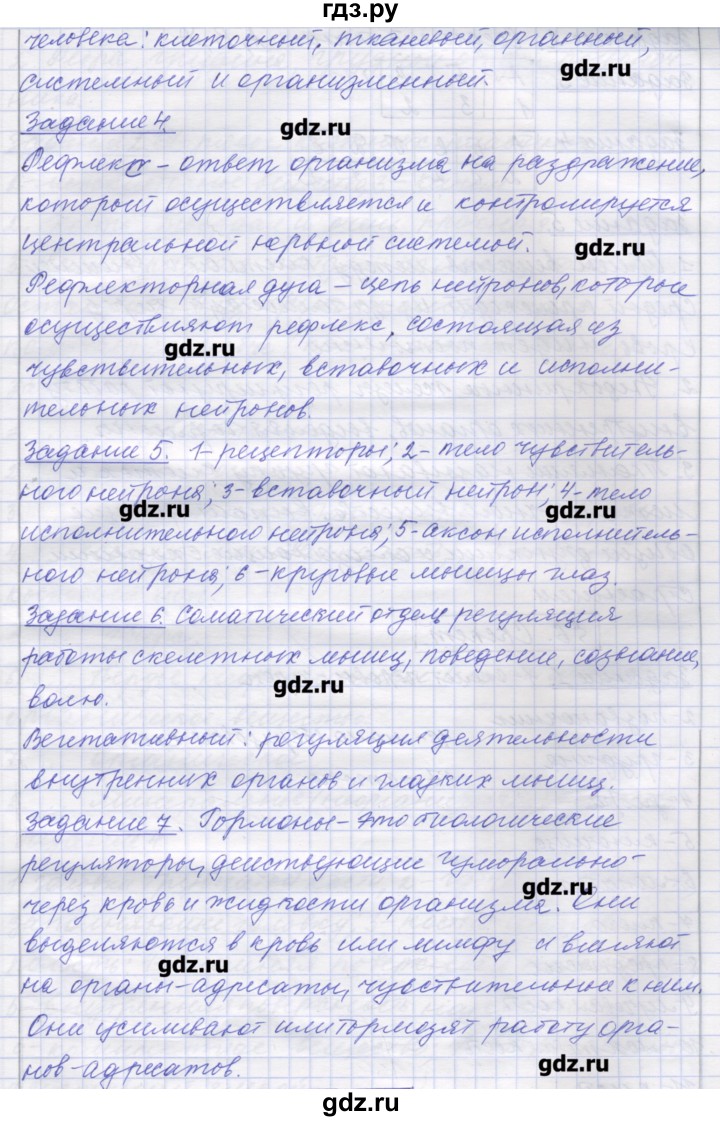 гдз.ру
человека: клеточный, тканевый, органный,
системный и организменный.
gdz.ru
Задание 4.
gdz.ru
Рефлекс – ответ организма на раздражение,
который осуществляется и контролируется
центральной нервной системой.
gdz.ru
Рефлекторная дуга – цепь нейронов, которые
осуществляют рефлекс, состоящая из
gdz.ru
чувствительных, вставочных и исполни-
тельных нейронов.
Задание 5. 1- рецепторы; 2- тело чувствитель-
ного нейрона; 3- вставочный нейрон; 4- тело
gdz.ru gdz.ru
исполнительного нейрона; 5- аксон исполнитель-
ного нейрона; 6 – круговые мышцы глаз.
Задание 6. Соматический отдел: регуляция
работы скелетных мышц, поведение, сознание,
gdz.ru
волю.
Вегетативный: регуляция деятельности
внутренних органов и гладких мышц.
Задание 7. Гормоны – это биологические
регуляторы, действующие гуморально-
gdz.ru
через кровь и жидкости организма. Они
выделяются в кровь или лимфу и влияют
gdz.ru
на органы-адресаты, чувствительные к ним.
Они усиливают или тормозят работу орга-
нов-адресатов.
gdz.ru
gdz.ru